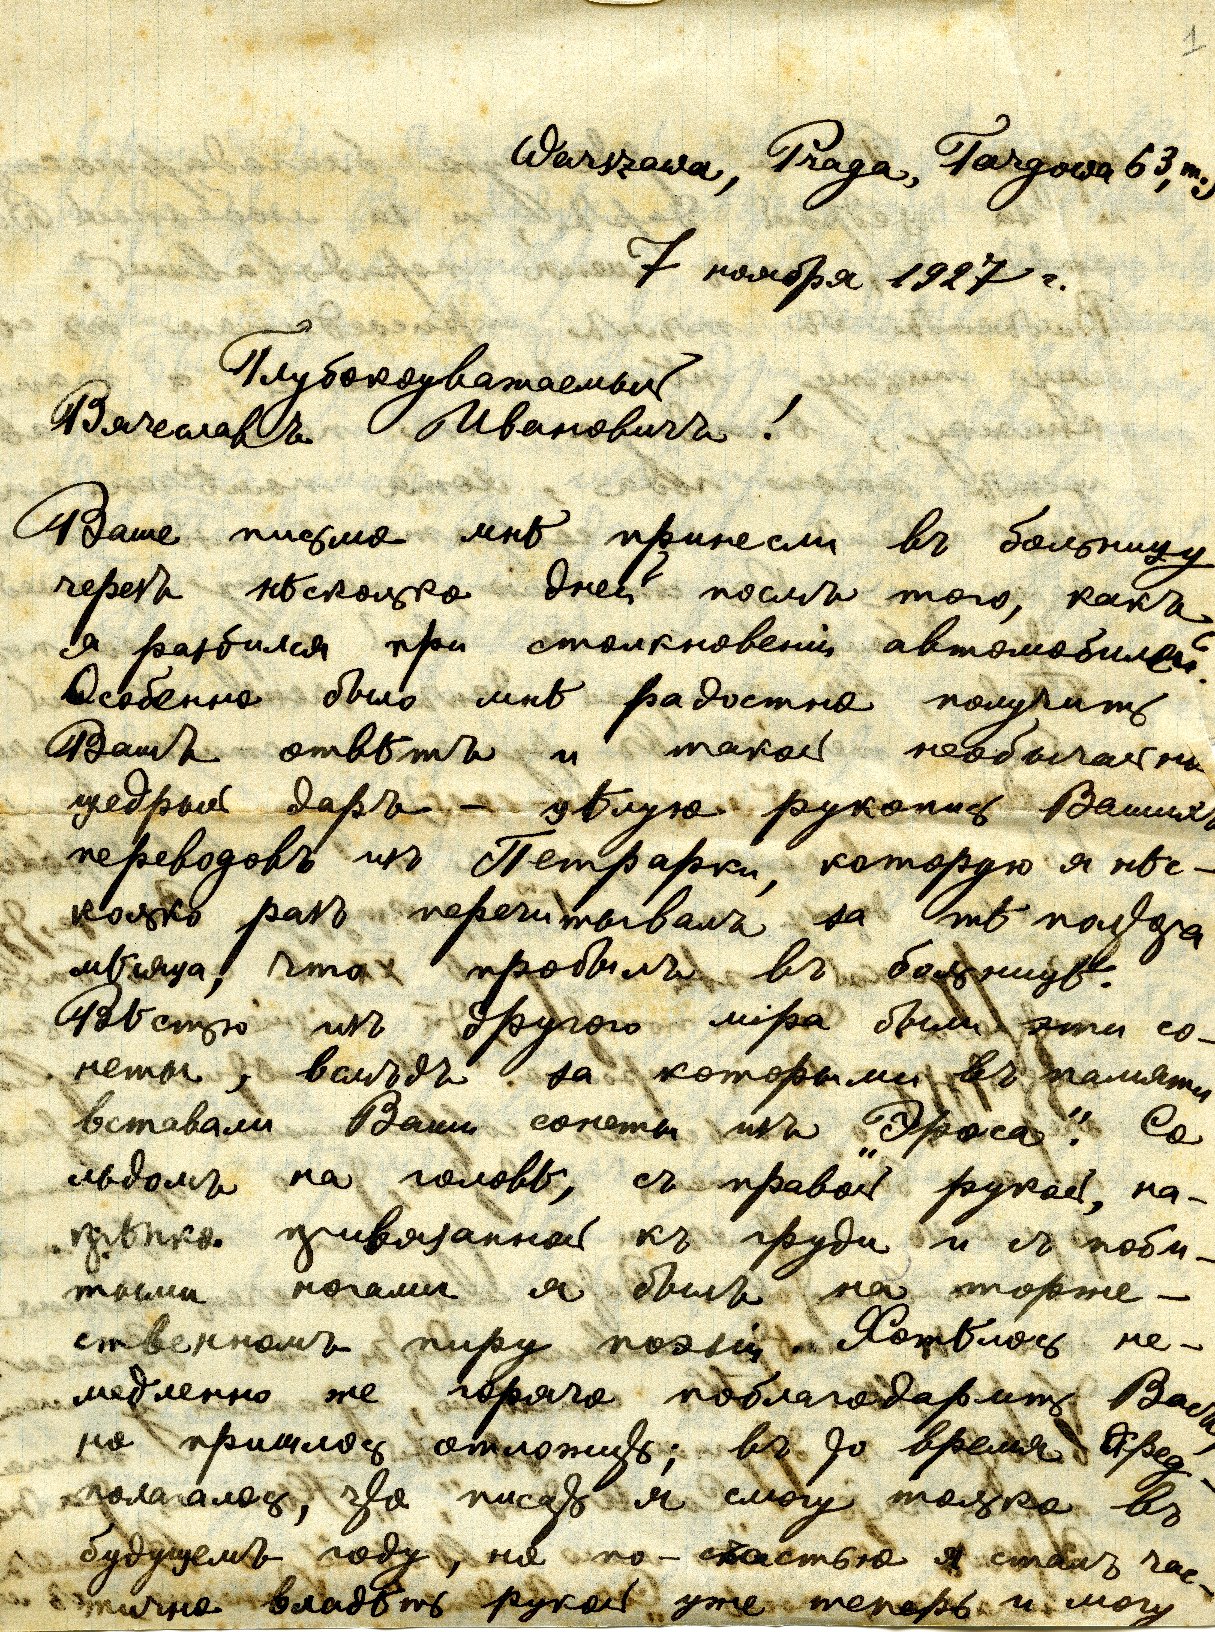 1
Warszawa, Praga, Targowa 63, m.
7 ноября 1927 г.
Глубокоуважаемый
Вячеславъ Ивановичъ!
Ваше письмо мнѣ принесли въ больницу
черезъ нѣсколько дней послѣ того, какъ
я разбился при столкновенiи автомобилей.
Особенно было мнѣ радостно получить
Вашъ отвѣтъ и такой необычайно
щедрый даръ – цѣлую рукопись Вашихъ
переводовъ изъ Петрарки, которую я нѣс-
колько разъ перечитывалъ за тѣ полтора
мѣсяца, что пробылъ въ больницѣ.
Вѣстью изъ другого мiра были эти со-
неты, вслѣдъ за которыми въ памяти
вставали Ваши сонеты изъ „Эроса". Со
льдомъ на головѣ, съ правой рукой, на-
крѣпко привязанной къ груди и съ поби-
тыми ногами я былъ на торже-
ственномъ пиру поэзiи. Хотѣлось не-
медленно же горячо поблагодарить Васъ,
но пришлось отложить; въ то время пред-
полагалось, что писать я смогу только въ
будущемъ году, но по-счастью я сталъ час-
тично владѣть рукой уже теперь и могу